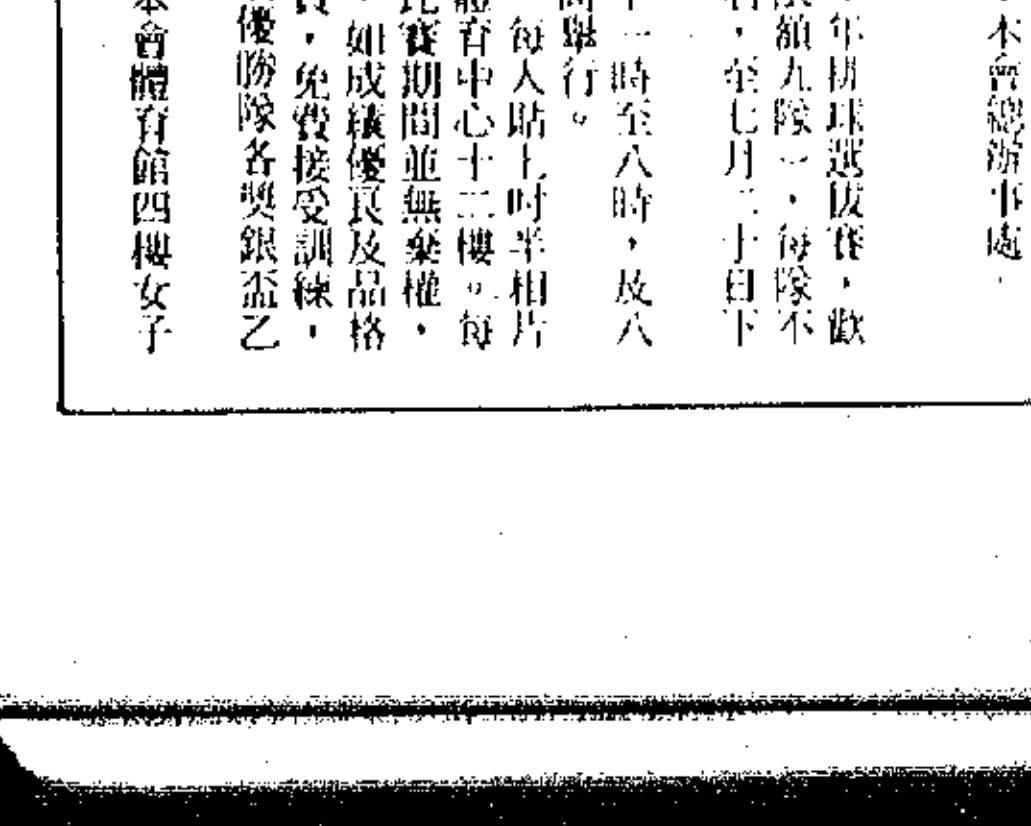 本會總辦事處，
年排球選拔賽，歡
限額九隊），每隊不
，至七月二十日下
一時至八時，及八
舉行。
每人貼上吋半相片
體育中心十二樓。每
比賽期間並無棄權，
，如成績優良及品格
費，免費接受訓練，
優勝隊各獎銀盃乙
本會體育館四樓女子